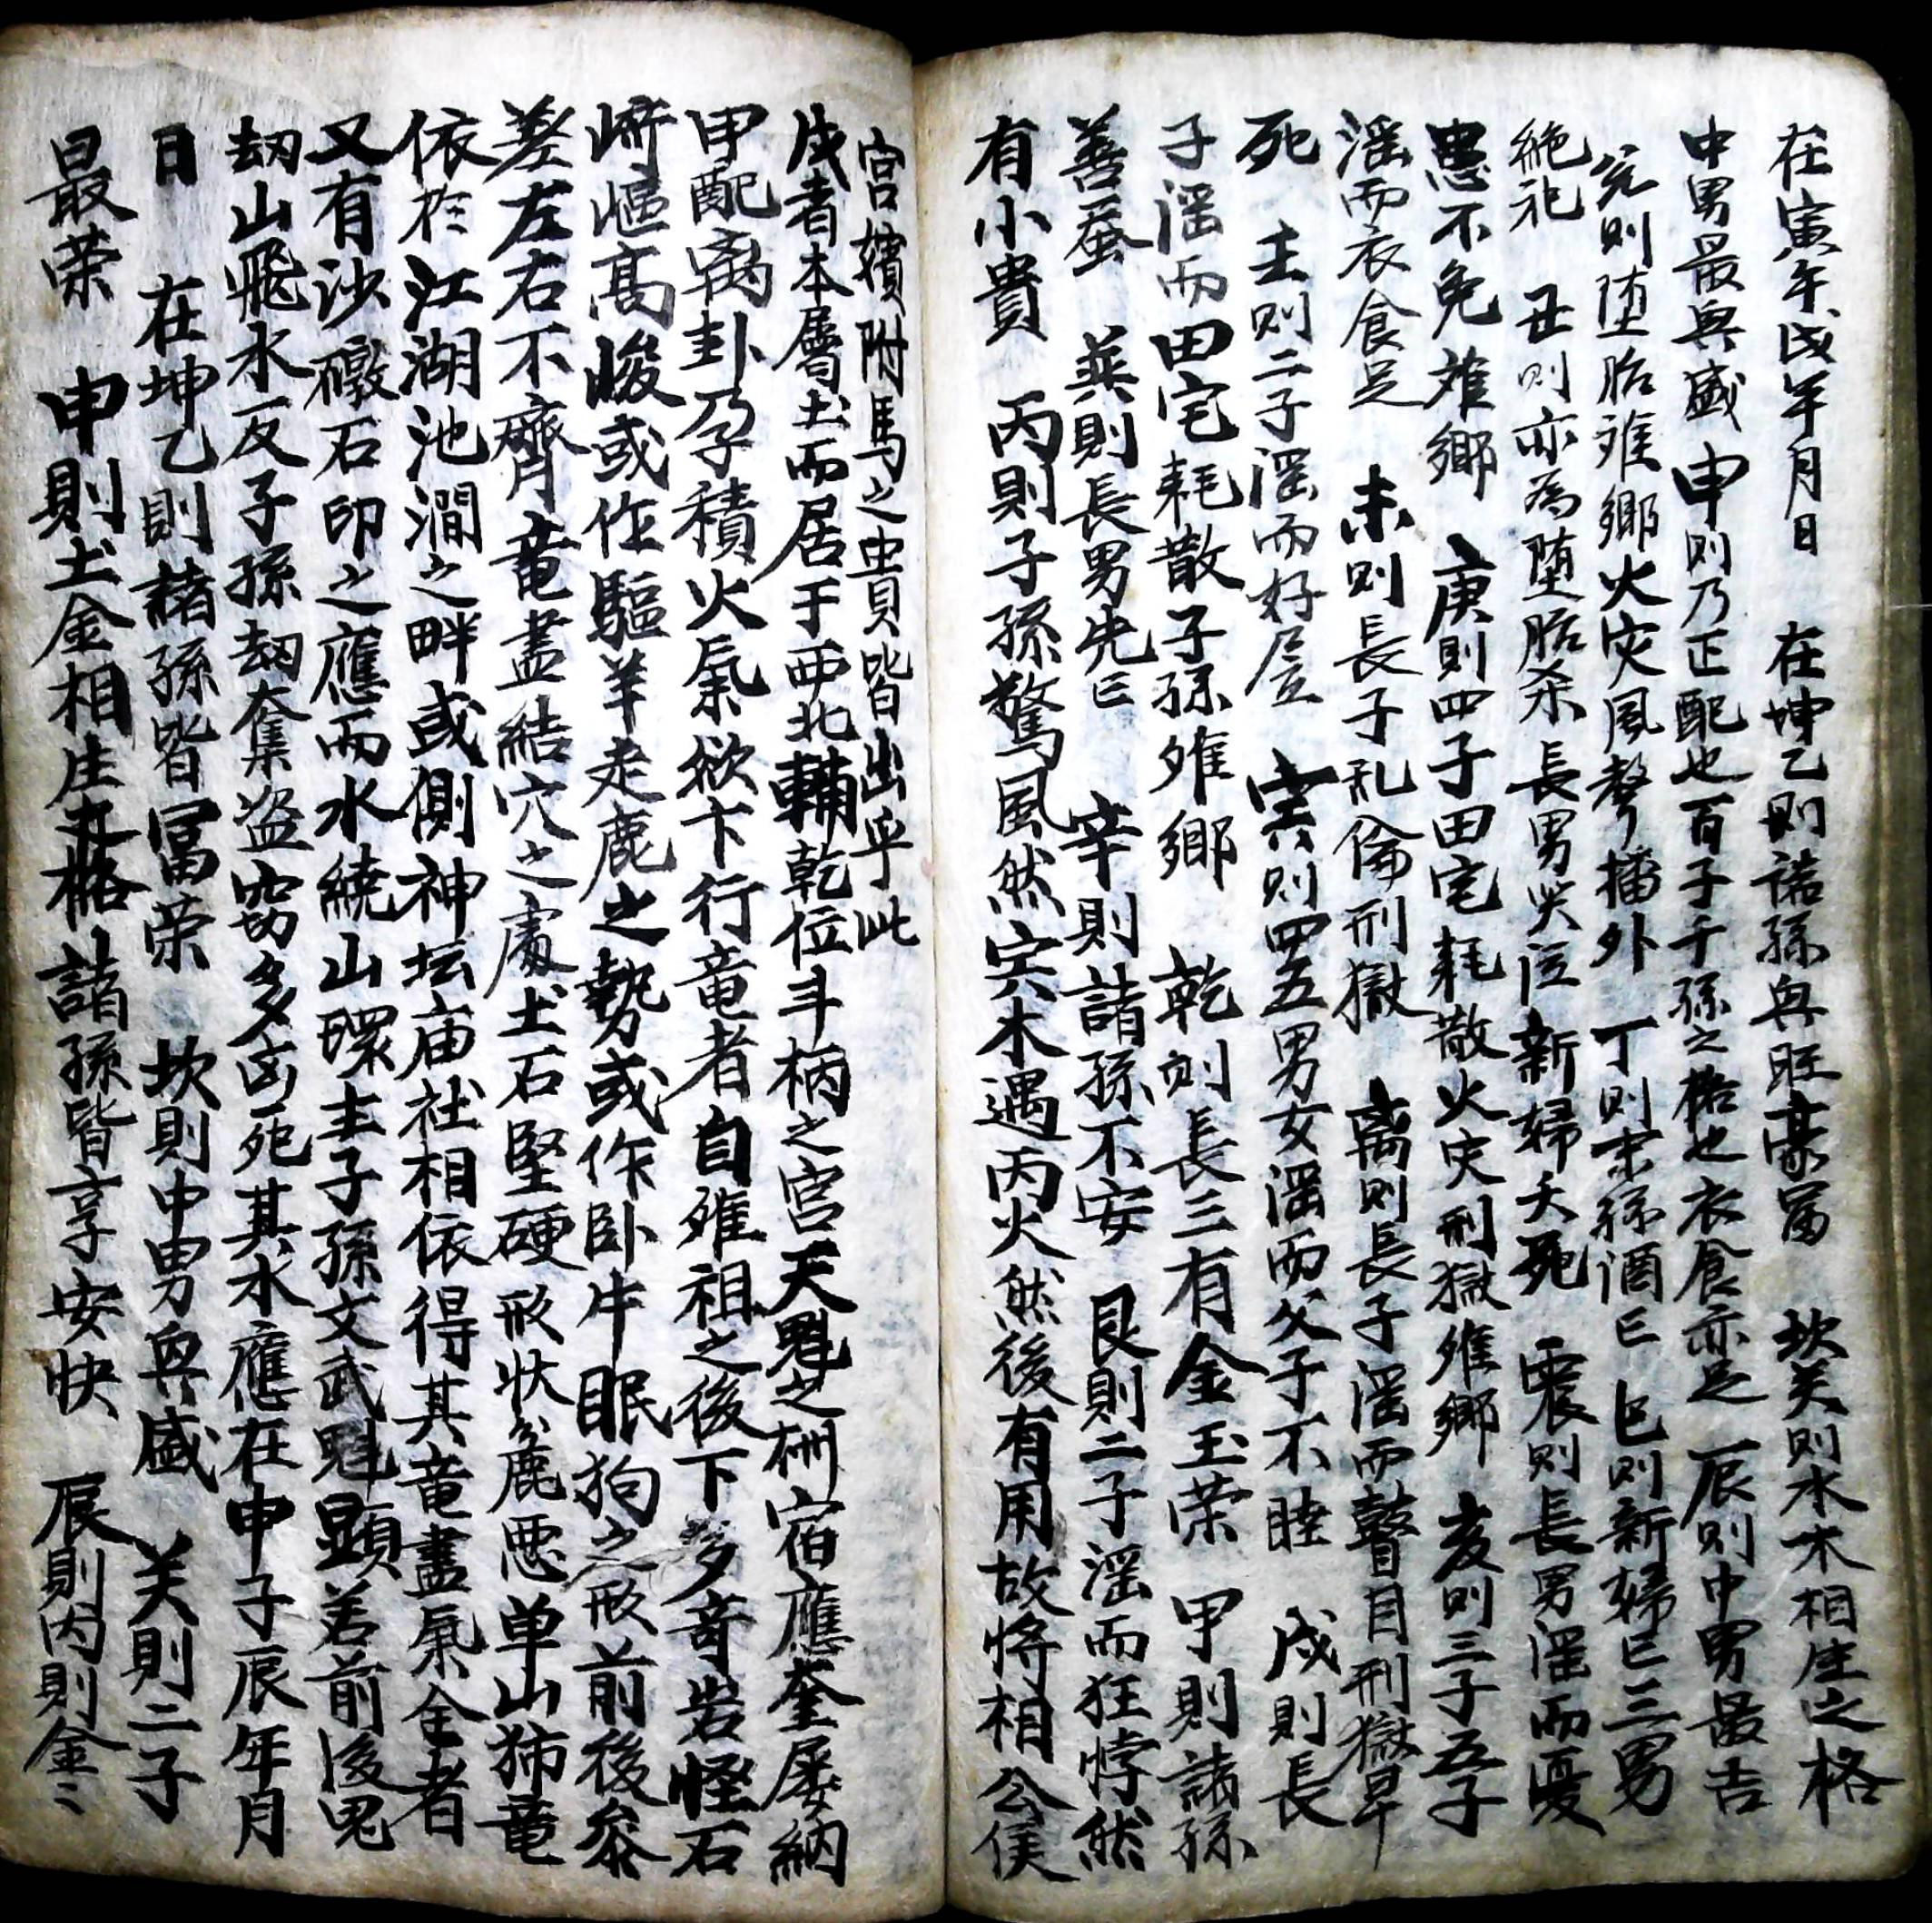 在寅午戌年月日　在坤乙則諸孫興旺豪富　坎癸則水木相生之格
中男最興盛　申則乃正配也百子千孫之格也衣食亦足　辰則中男最吉
兌則堕胎离鄉火灾風聲播外　丁則末孫酒亡　巳則新婦亡三男
絶祀　丑則亦為堕胎杀長男哭泣新婦夭死　震則長男滛而憂
患不免难鄉　庚則四子田宅耗散火灾刑獄难鄉　亥則三子五子
滛而衣食足　未則長子乱倫刑獄　离則長子滛而瞽目刑獄早
死　壬則二子滛而好屋　寅則四五男女滛而父子不睦　戌則長
子滛而田宅耗散子孫难鄉　乾則長三有金玉荣　甲則諸孫
善蚕　巽則長男先亡　辛則諸孫不安　艮則二子滛而狂悖然
有小貴　丙則子孫驚風然宾木遇丙火然後有用故将相公侯
宫嬪附馬之中貴皆出乎此
戌者本屬土而居于西北輔乾位斗柄之宮天魁之栦宿應奎屡納
甲配离卦乃積火氣欲下行竜者自难祖之後下多奇岩怪石
崎嶇高峻或作驅羊走鹿之勢或作卧牛眠狗之形前後参
差左右不齊竜盡結穴之處土石堅硬形状麁悪单山㹃竜
依於江湖池澗之畔或側神坛庙社相依得其竜盡氣全者
又有沙礅石印之應而水繞山環主子孫文武魁顕若前後鬼
刼山飛水反子孫刼奪盗窃多凶死其水應在申子辰年月
日　在坤乙則諸孫皆冨荣　坎則中男興盛　癸則二子
最荣　申則土金相生其格諸孫皆享安快　辰則丙則金〻